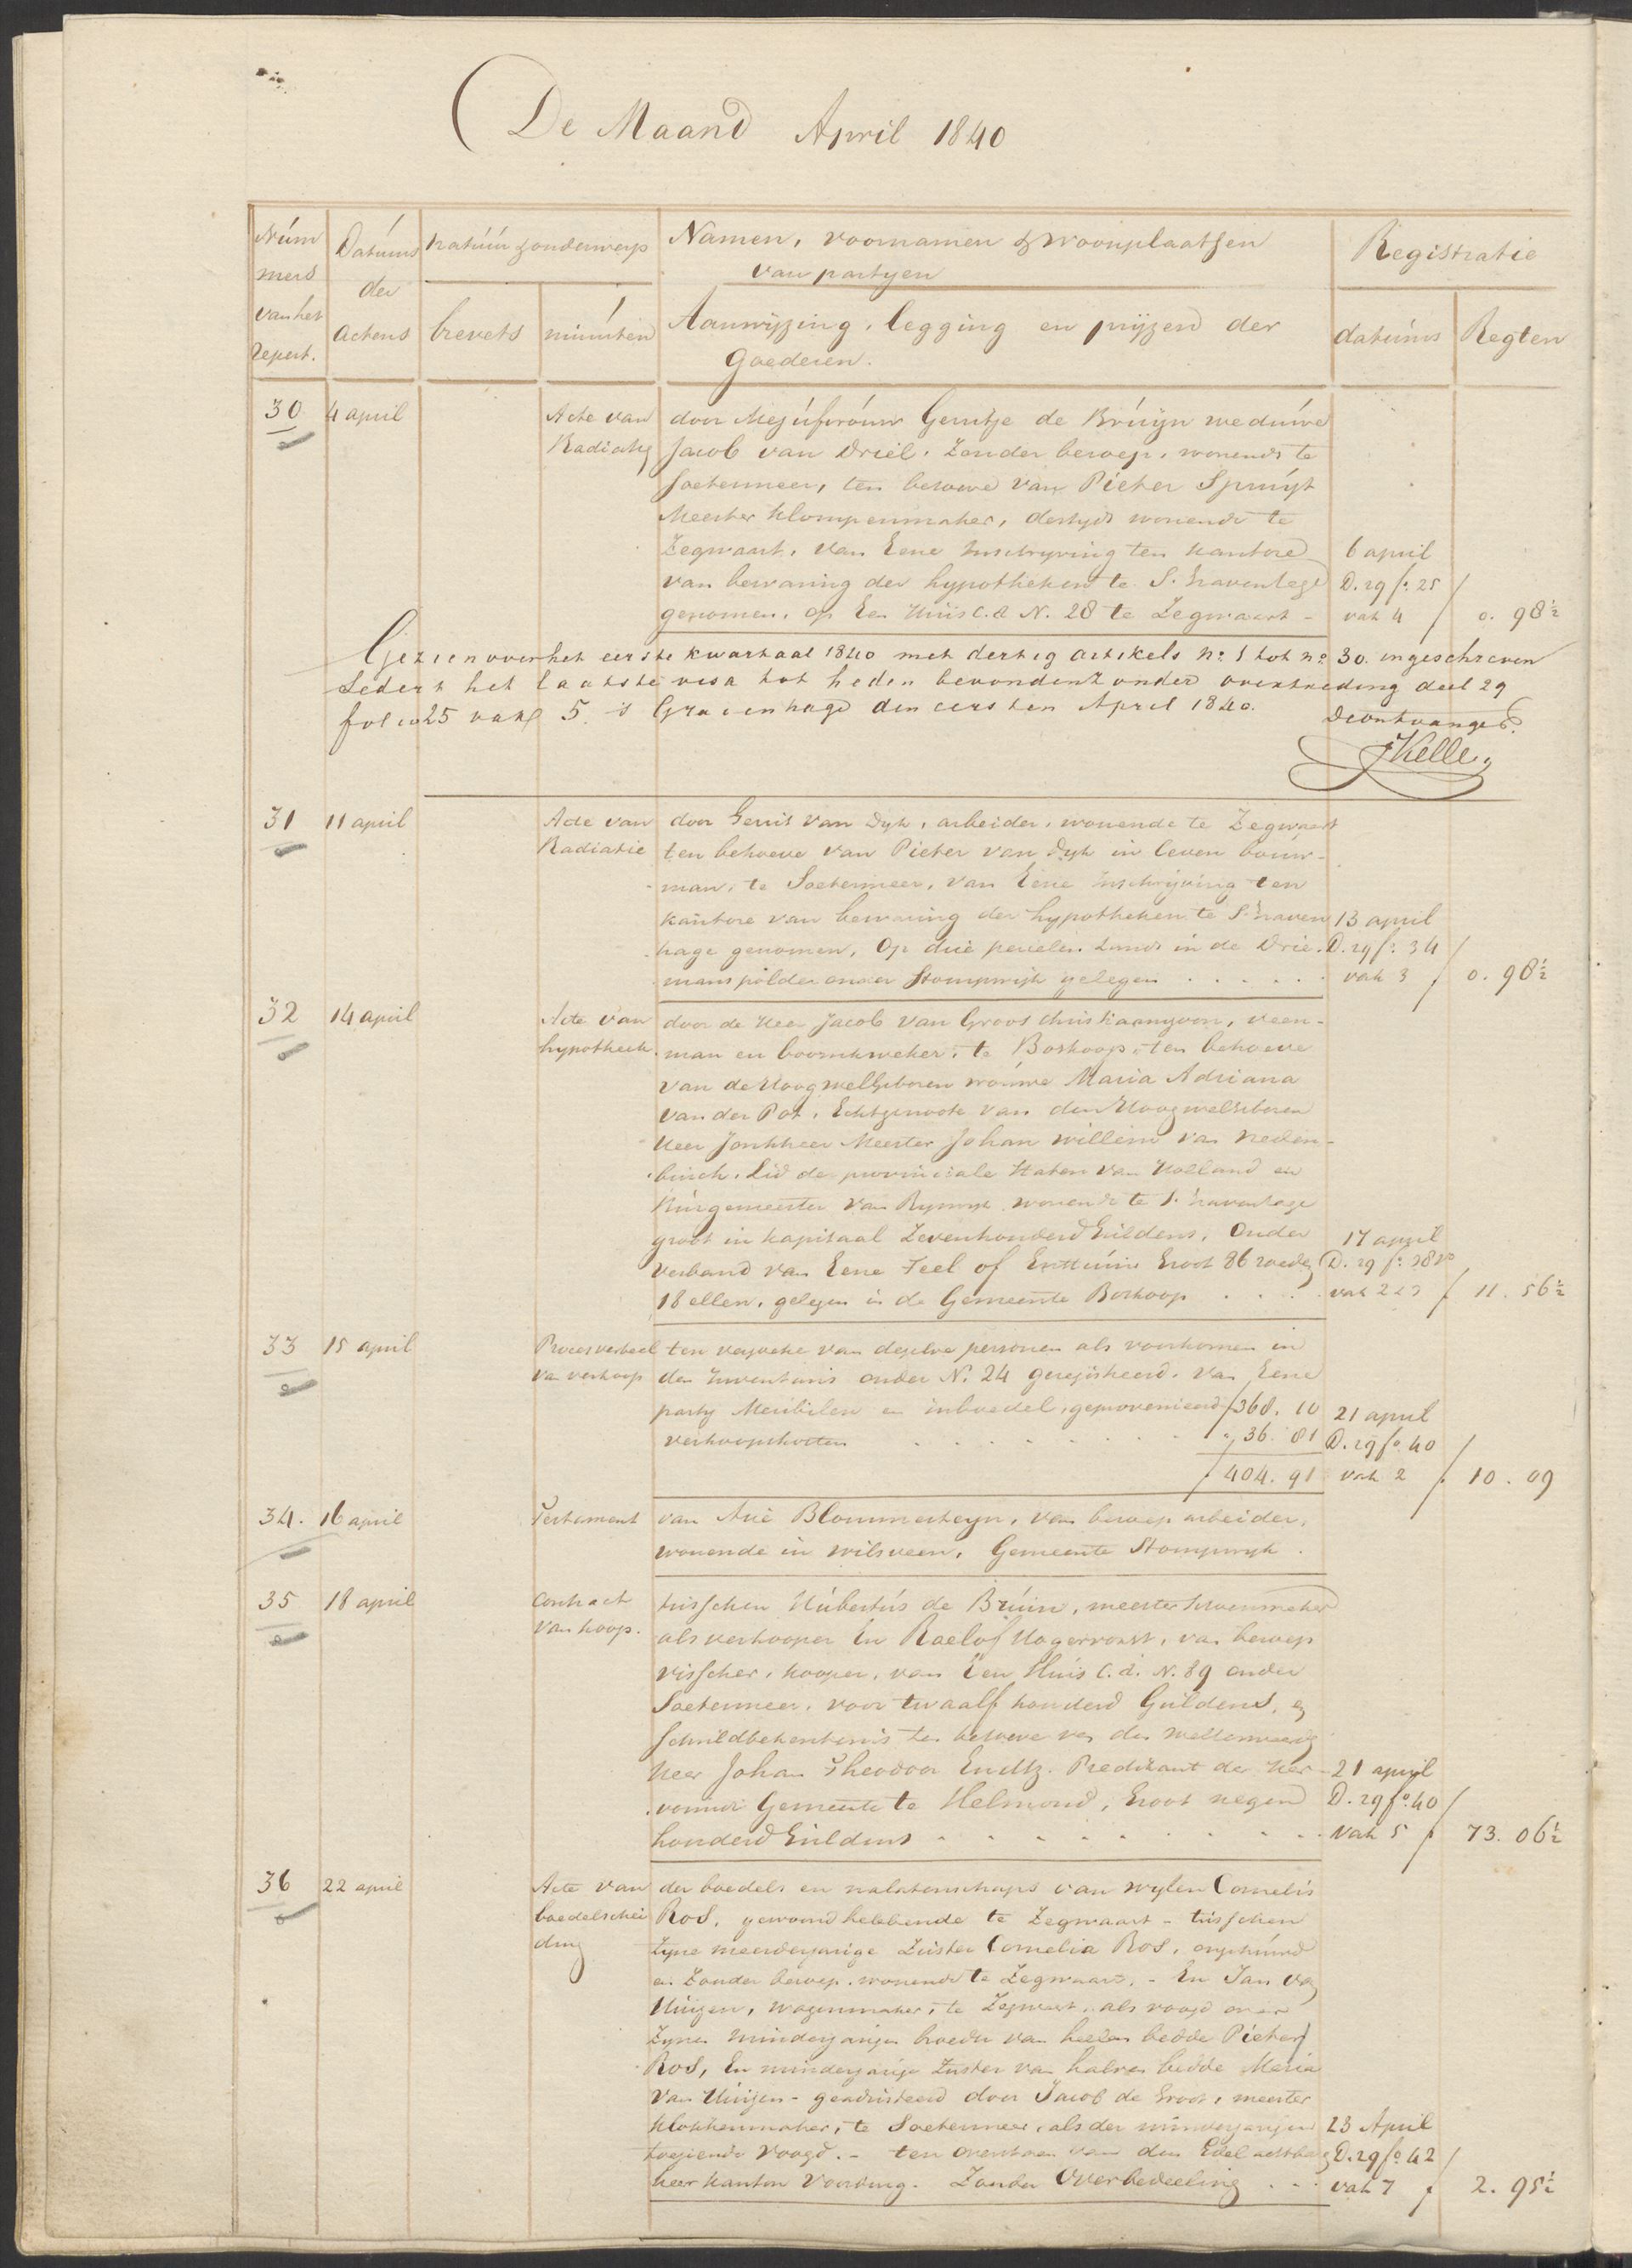 De Maand April 1840
Núm
mers
van het
Repert.
Datúms
der
Actens
natúúr & onderwerp
brevets
minúten
Namen, voornamen & woonplaatsen
van partyen
Aanwijzing, legging en prijzen der
Goederen.
Registratie
datúms
Regten
30
4 april
Acte van
Radiatie
door Mejúfvroúw Gerritje de Brúijn wedúwe
Jacob van Driel, Zonder beroep, wonende te
Soetermeer, ten behoeve van Pieter Sprúijt
Meester Klompenmaker, destyds wonende te
Zegwaart, van Eene Inschryving ten kantore
van bewaring der hypotheken te S. Gravenhage
genomen, op Een Húis C.d N. 28 te Zegwaart -
6 april
D. 29 fo. 25
vak 4
0. 98½
Gezien over het eerste kwartaal 1840 met dertig artikels no. 1 tot no. 30 ingeschreven
sedert het laatste visa tot heden bevonden zonder overtreding deel 29
folio 25 vak 5. 's Gravenhage den eersten April 1840.
De ontvanger
JKelle
31
11 april
Acte van
Radiatie
door Gerrit van Dyk, arbeider, wonende te Zegwaart
ten behoeve van Pieter van Dyk in leven bouw-
man, te Soetermeer, van Eene Inschrijving ten
kantore van bewaring der hypotheken te S. Graven
hage genomen, Op drie perceelen Lands in de Drie-
manspolder onder Stompwijk gelegen
13 april
D. 29 fo. 34
vak 3
0. 98½
32
14 april
Acte van
hypotheek
door de Heer Jacob van Groos Christiaanzoon, veen-
man en boomkweker, te Boskoop, ten behoeve
van de Hoogwelgeboren vroúwe Maria Adriana
van der Pot, Echtgenoote van den Hoogwelgeboren
Heer Jonkheer Meester Johan willem van
Lid der provinciale Staten van Holland en
Búrgemeester van Ryswyk wonende te S. Gravenhage
groot in kapitaal Zevenhonderd Guldens, Onder
verband van Eene Teel of Enttúin Groot 86 roeden
18 ellen, gelegen in de Gemeente Boskoop
17 april
D. 29 fo. 38 vo
vak 2 & 3
11. 56½
33
15 april
Proces verbael
van verkoop
ten verzoeke van dezelve personen als voorkomen in
den Inventaris onder N. 24 geregistreerd. van Eene
party Meubilen en inboedel, geprovenieerd f 368. 10
verkoopskosten " 36. 81
f 404. 91
21 april
D. 29 fo. 40
vak 2
10. 09
34.
16 april
Testament
van Arie Blommesteyn, van beroep arbeider,
wonende in wilsveen, Gemeente Stompwyk.
35
18 april
Contract
van koop.
tusschen Húbertús de Brúin, meester Schoenmaker
als verkooper En Roelof Hogervorst, van beroep
visscher, kooper, van Een Húis C.d. N. 89 onder
Soetermeer, voor twaalf honderd Guldens, en
schuldbekentenis ten behoeve van den wellerwaarde
Heer Johan Theodoor Predikant der Her-
vormde Gemeente te Helmond, Groot negen
honderd Guldens
21 april
D. 29 fo. 40
vak 5
73. 06½
36
22 april
Acte van
boedelschei
ding
der boedels en nalatenschaps van wylen Cornelis
Ros, gewoond hebbende te Zegwaart - tusschen
zyne meerderjarige Zúster Cornelia Ros, ongehúwd
en Zonder beroep, wonende te Zegwaart, - En Jan van
Húizen, wagenmaker, te Zegwaart, als voogd over
Zynen minderjarigen broeder van heelen bedde Pieter
Ros, En minderjarige Zuster van halven bedde Maria
van Húizen - geadsisteerd door Jacob de Groot, meester
Klokkenmaker, te Soetermeer, als der minderjarigen
toeziende Voogd. - ten overstaan van den Edel achtbaren
heer kanton Voorburg. Zonder Overbedeeling
23 April
D. 29 fo. 42
vak 7
2. 95½